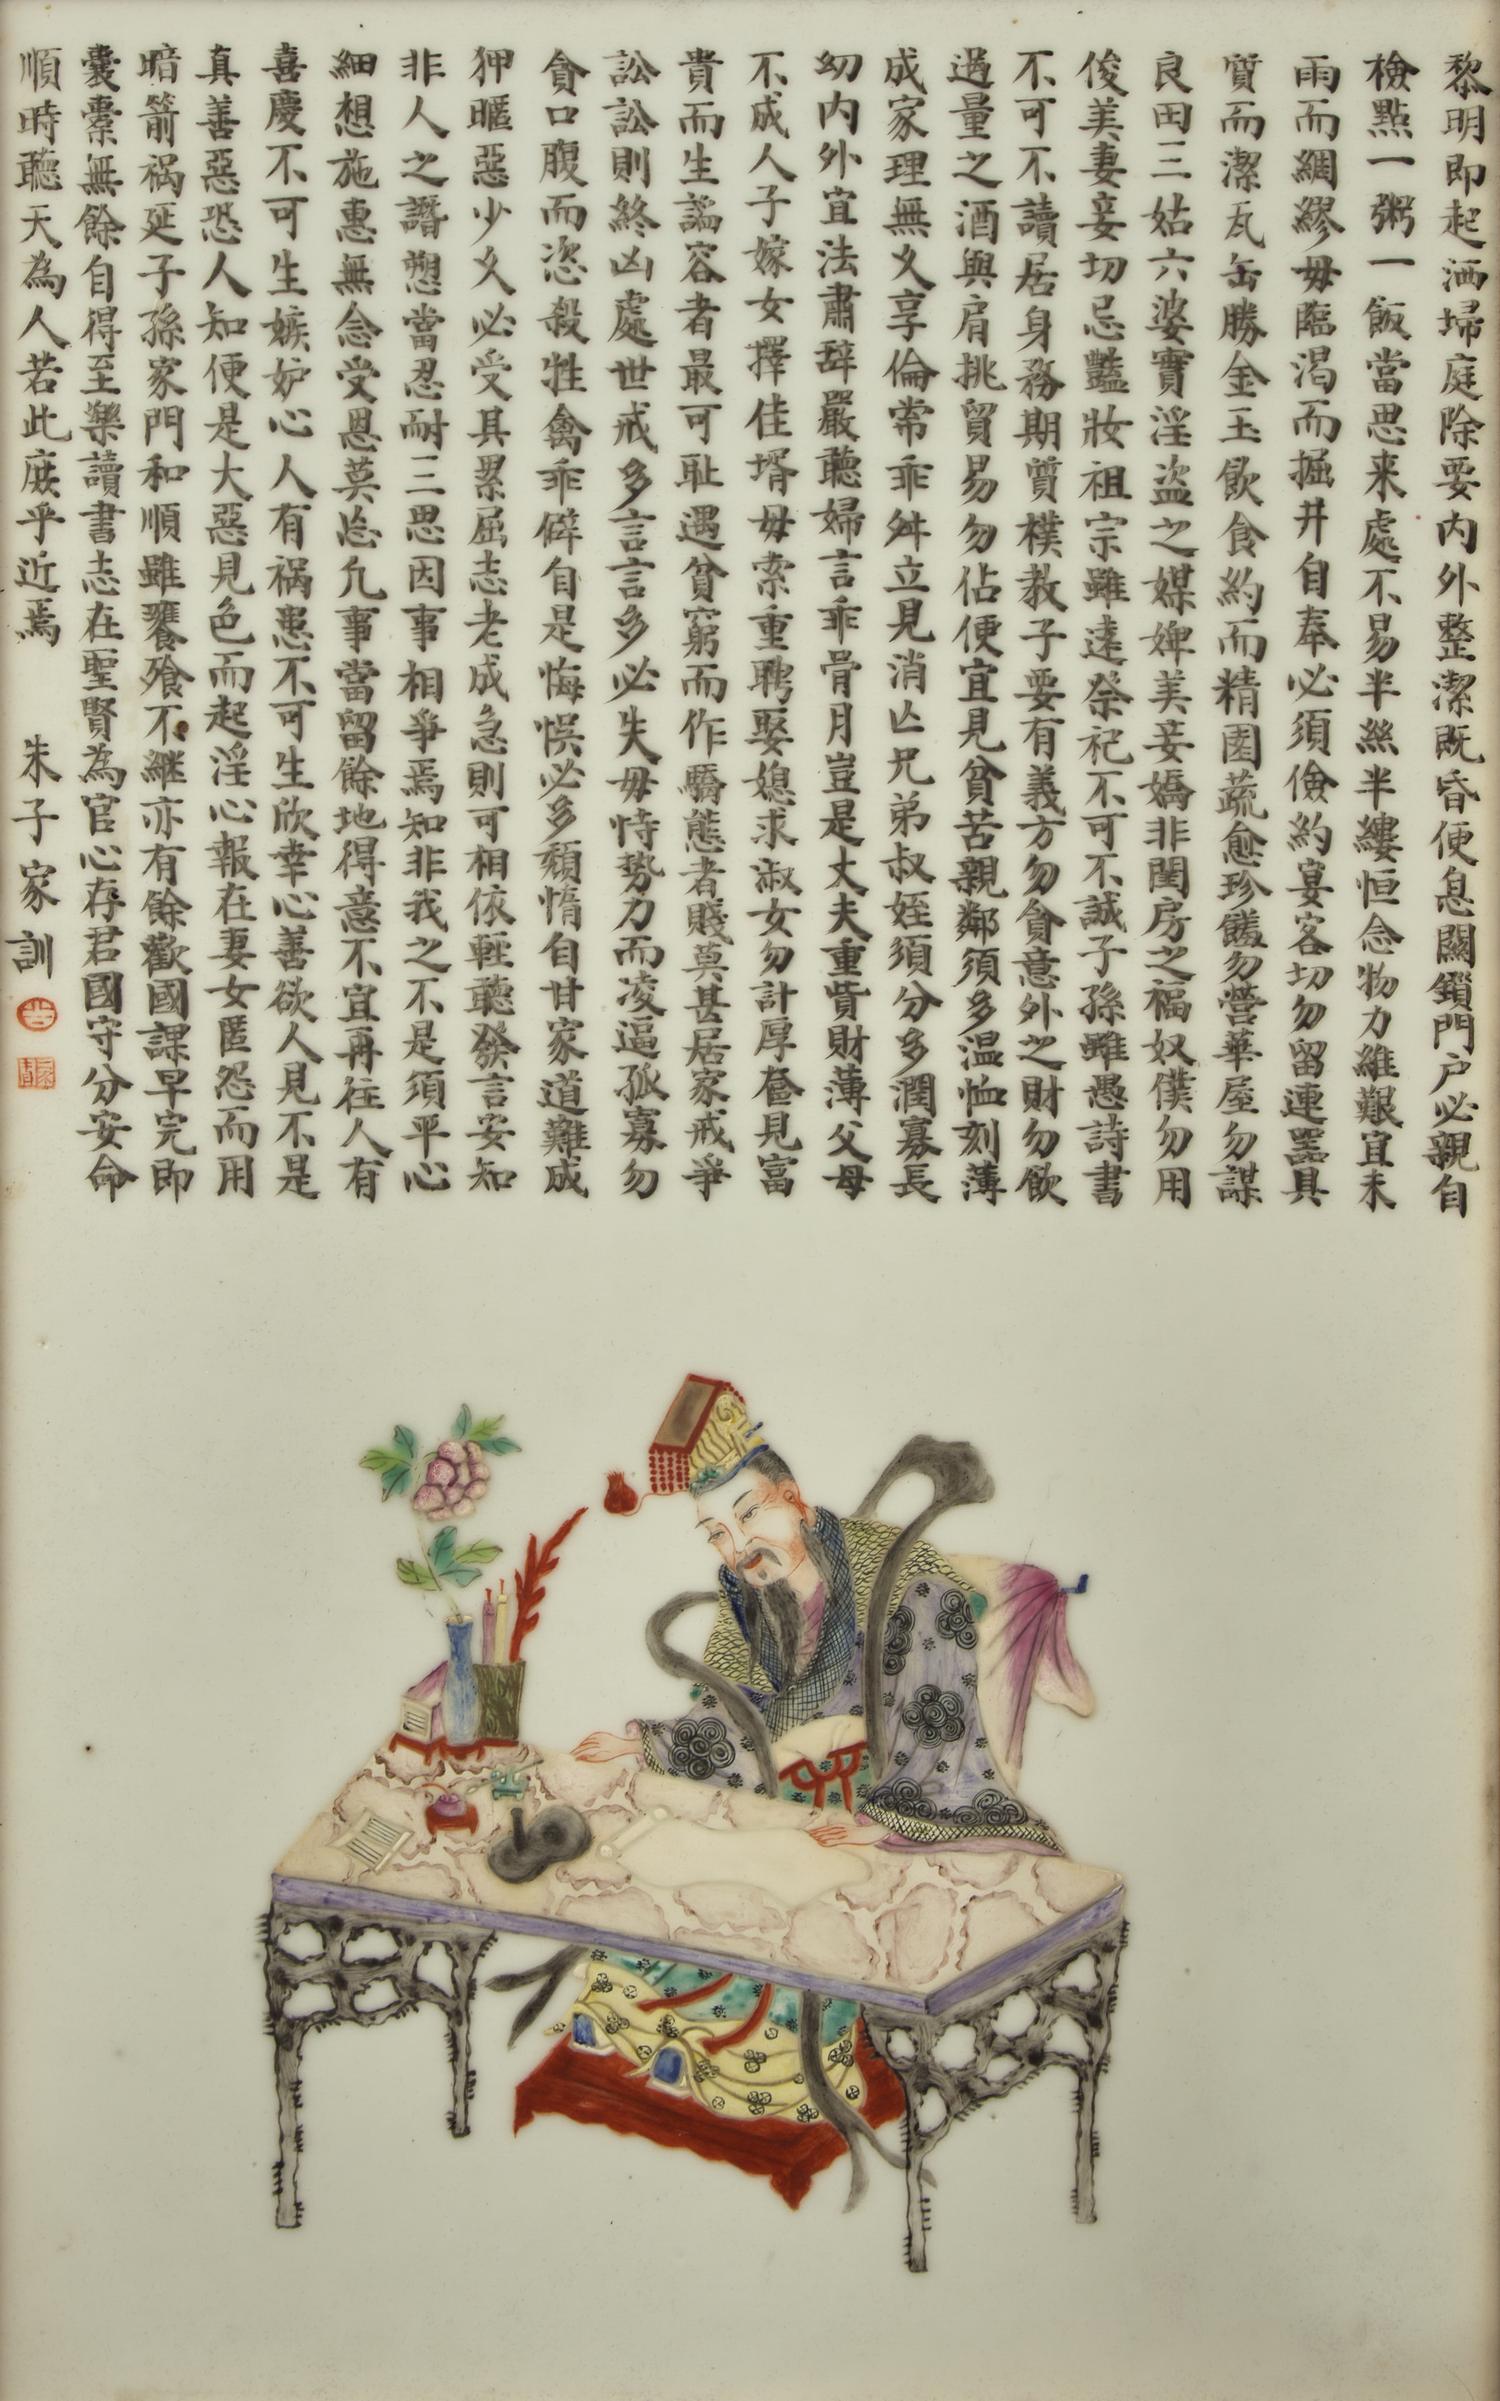 黎明即起洒埽庭除要内外整潔既昏便息關鎖門户必親自
檢點一粥一飯當思来處不易半絲半縷恒念物力維艱宜未
雨而綢繆毋臨渴而掘井自奉必須儉約宴客切勿留連器具
質而潔瓦缶勝金玉飲食約而精園蔬愈珍饈勿營華屋勿謀
良田三姑六婆實淫盗之媒婢美妾嬌非閨房之福奴僕勿用
俊美妻妾切忌豔妝祖宗雖遠祭祀不可不誠子孫雖愚詩書
不可不讀居身務期質樸教子要有義方勿貪意外之財勿飲
過量之酒與肩挑貿易勿佔便宜見貧苦親鄰須多温恤刻薄
成家理無久享倫常乖舛立見消亡兄弟叔姪須分多潤寡長
幼内外宜法肅辭嚴聽婦言乖骨月豈是丈夫重貲財薄父母
不成人子嫁女擇佳壻毋索重聘娶媳求淑女勿計厚奩見富
貴而生謟容者最可耻遇貧窮而作驕態者賤莫甚居家戒爭
訟訟則終凶處世戒多言言多必失毋恃勢力而凌逼孤寡勿
貪口腹而恣殺牲禽乖僻自是悔悮必多頹惰自甘家道難成
狎暱惡少久必受其累屈志老成急則可相依輕聽發言安知
非人之譖愬當忍耐三思因事相爭焉知非我之不是須平心
細想施惠無念受恩莫忘凢事當留餘地得意不宜再往人有
喜慶不可生嫉妒心人有禍患不可生欣幸心善欲人見不是
真善惡恐人知便是大惡見色而起淫心報在妻女匿怨而用
暗箭禍延子孫家門和順雖饔飧不継亦有餘歡國課早完即
囊橐無餘自得至樂讀書志在聖賢為官心存君國守分安命
順時聽天為人若此庶乎近焉 朱子家訓